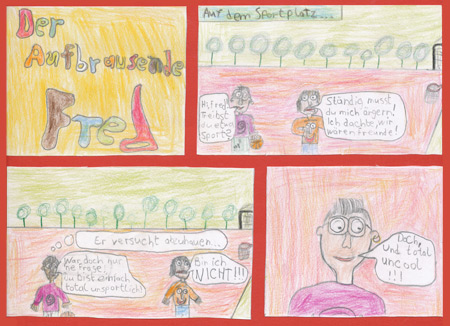 Der
Aufbrausende
Fred
Auf dem Sportplatz...
Hi, Fred
Treibst
du etwa
Sport?
Ständig musst
du mich ärgern!
Ich dachte, wir
wären Freunde!
Er versucht abzuhauen...
War doch nur
'ne Frage!
Du bist einfach
total unsportlich!
Bin ich
NICHT!!!
Doch,
Und total
uncool
!!!